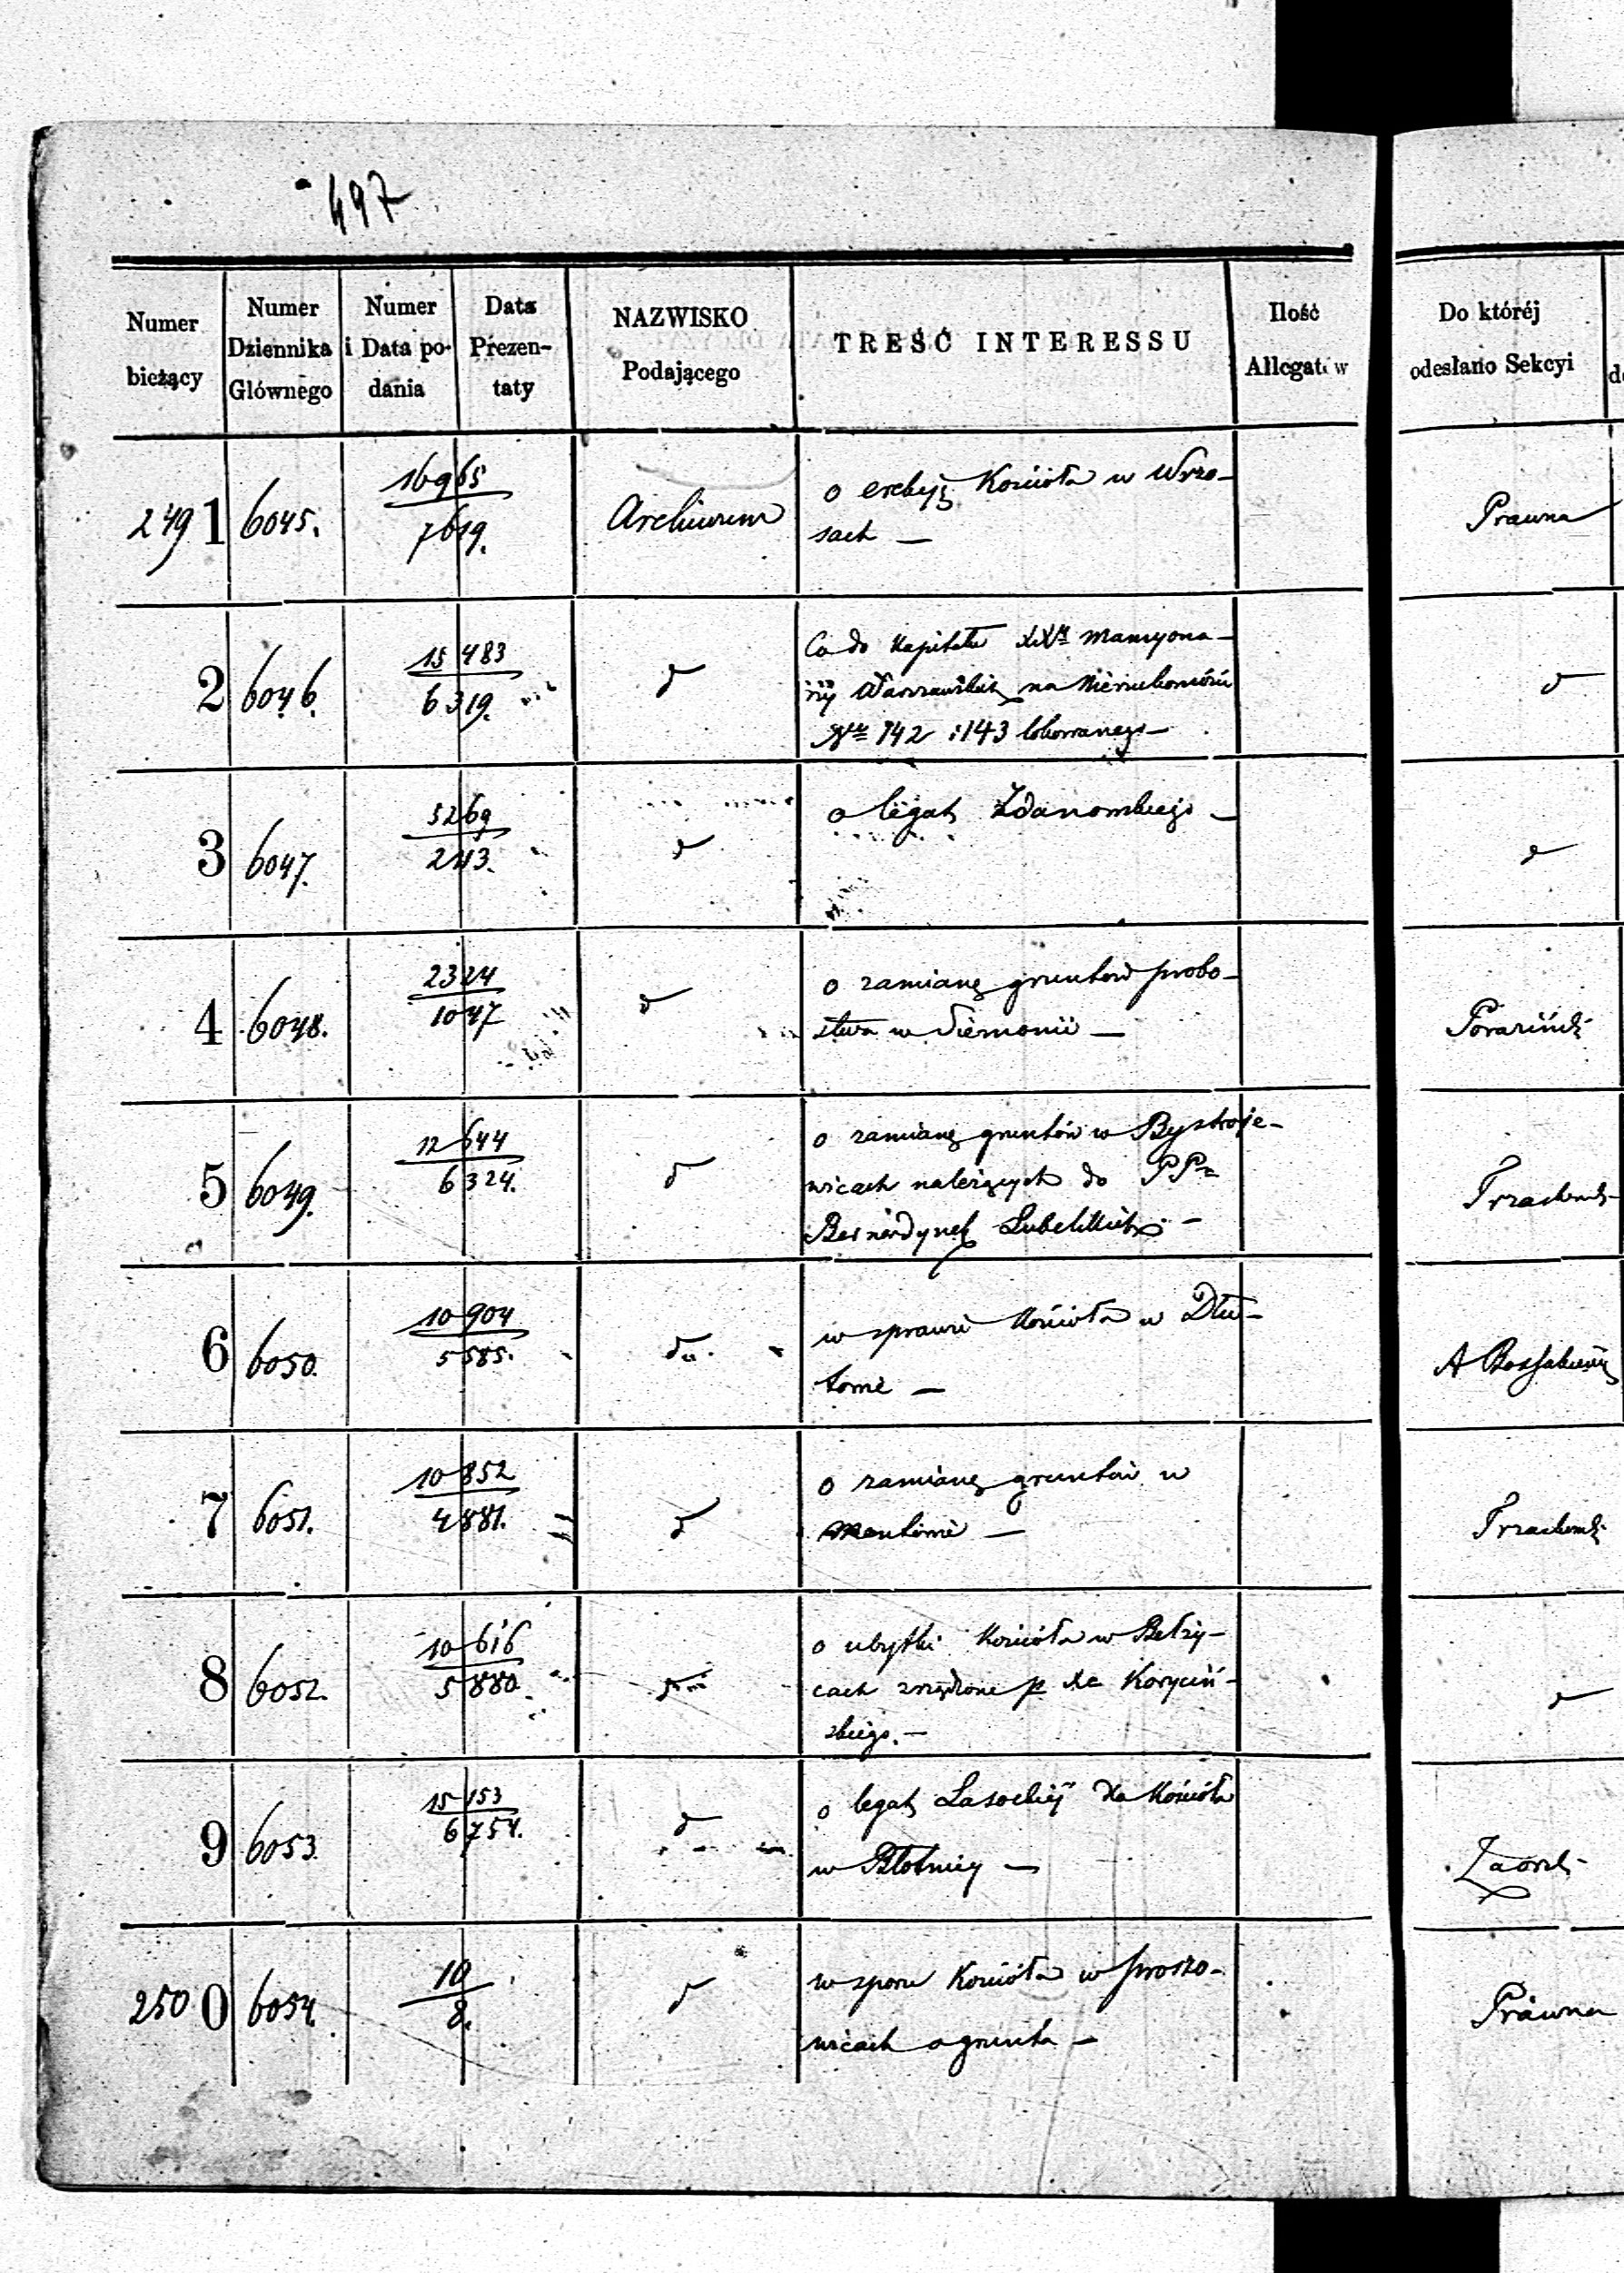 497
Numer bieżący
Numer Dziennika Głównego
Numer i Data podania
Data Prezentaty
NAZWISKO Podającego
TREŚĆ INTERESSU
Ilość Allegatów
Do któréj odesłano Sekcyi
2491 6045. 16965 / 7619. Archiwum
o erekcyją Kościoła w Wrzo-
sach —
Prawna
2 6046. 15483 / 6319. d
Co do Kapitału XX Mansyona-
rzy Warszawskich na Nieruchomości
Nr 142 i 143 lokowanego —
d
3 6047. 5269 / 2113. d
o legat Zdanowskiego —
d
4 6048. 2324 / 1047 d
o zamianę gruntów probo-
stwa w Siemonii —
Poraziński
5 6049. 12644 / 6324. d
o zamianę gruntów w Bystrzeje-
wicach należących do PP
Bernardynek Lubelskich —
6 6050. 10904 / 5585. do.
w sprawie Kościoła w Dłu-
towie —
7 6051. 10852 / 4881. d
o zamianę gruntów w
8 6052. 10616 / 5880
o ubytki Kościoła w Bełży-
cach zrządzone p Xa Koryciń-
skiego. —
d
9 6053. 15153 / 6754. d
o legat Lasockiej dla Kościoła
w Błotnicy —
2500 6054. 10 / 8. d
w sporu Kościoła w Proszo-
wicach o grunta —
Prawna